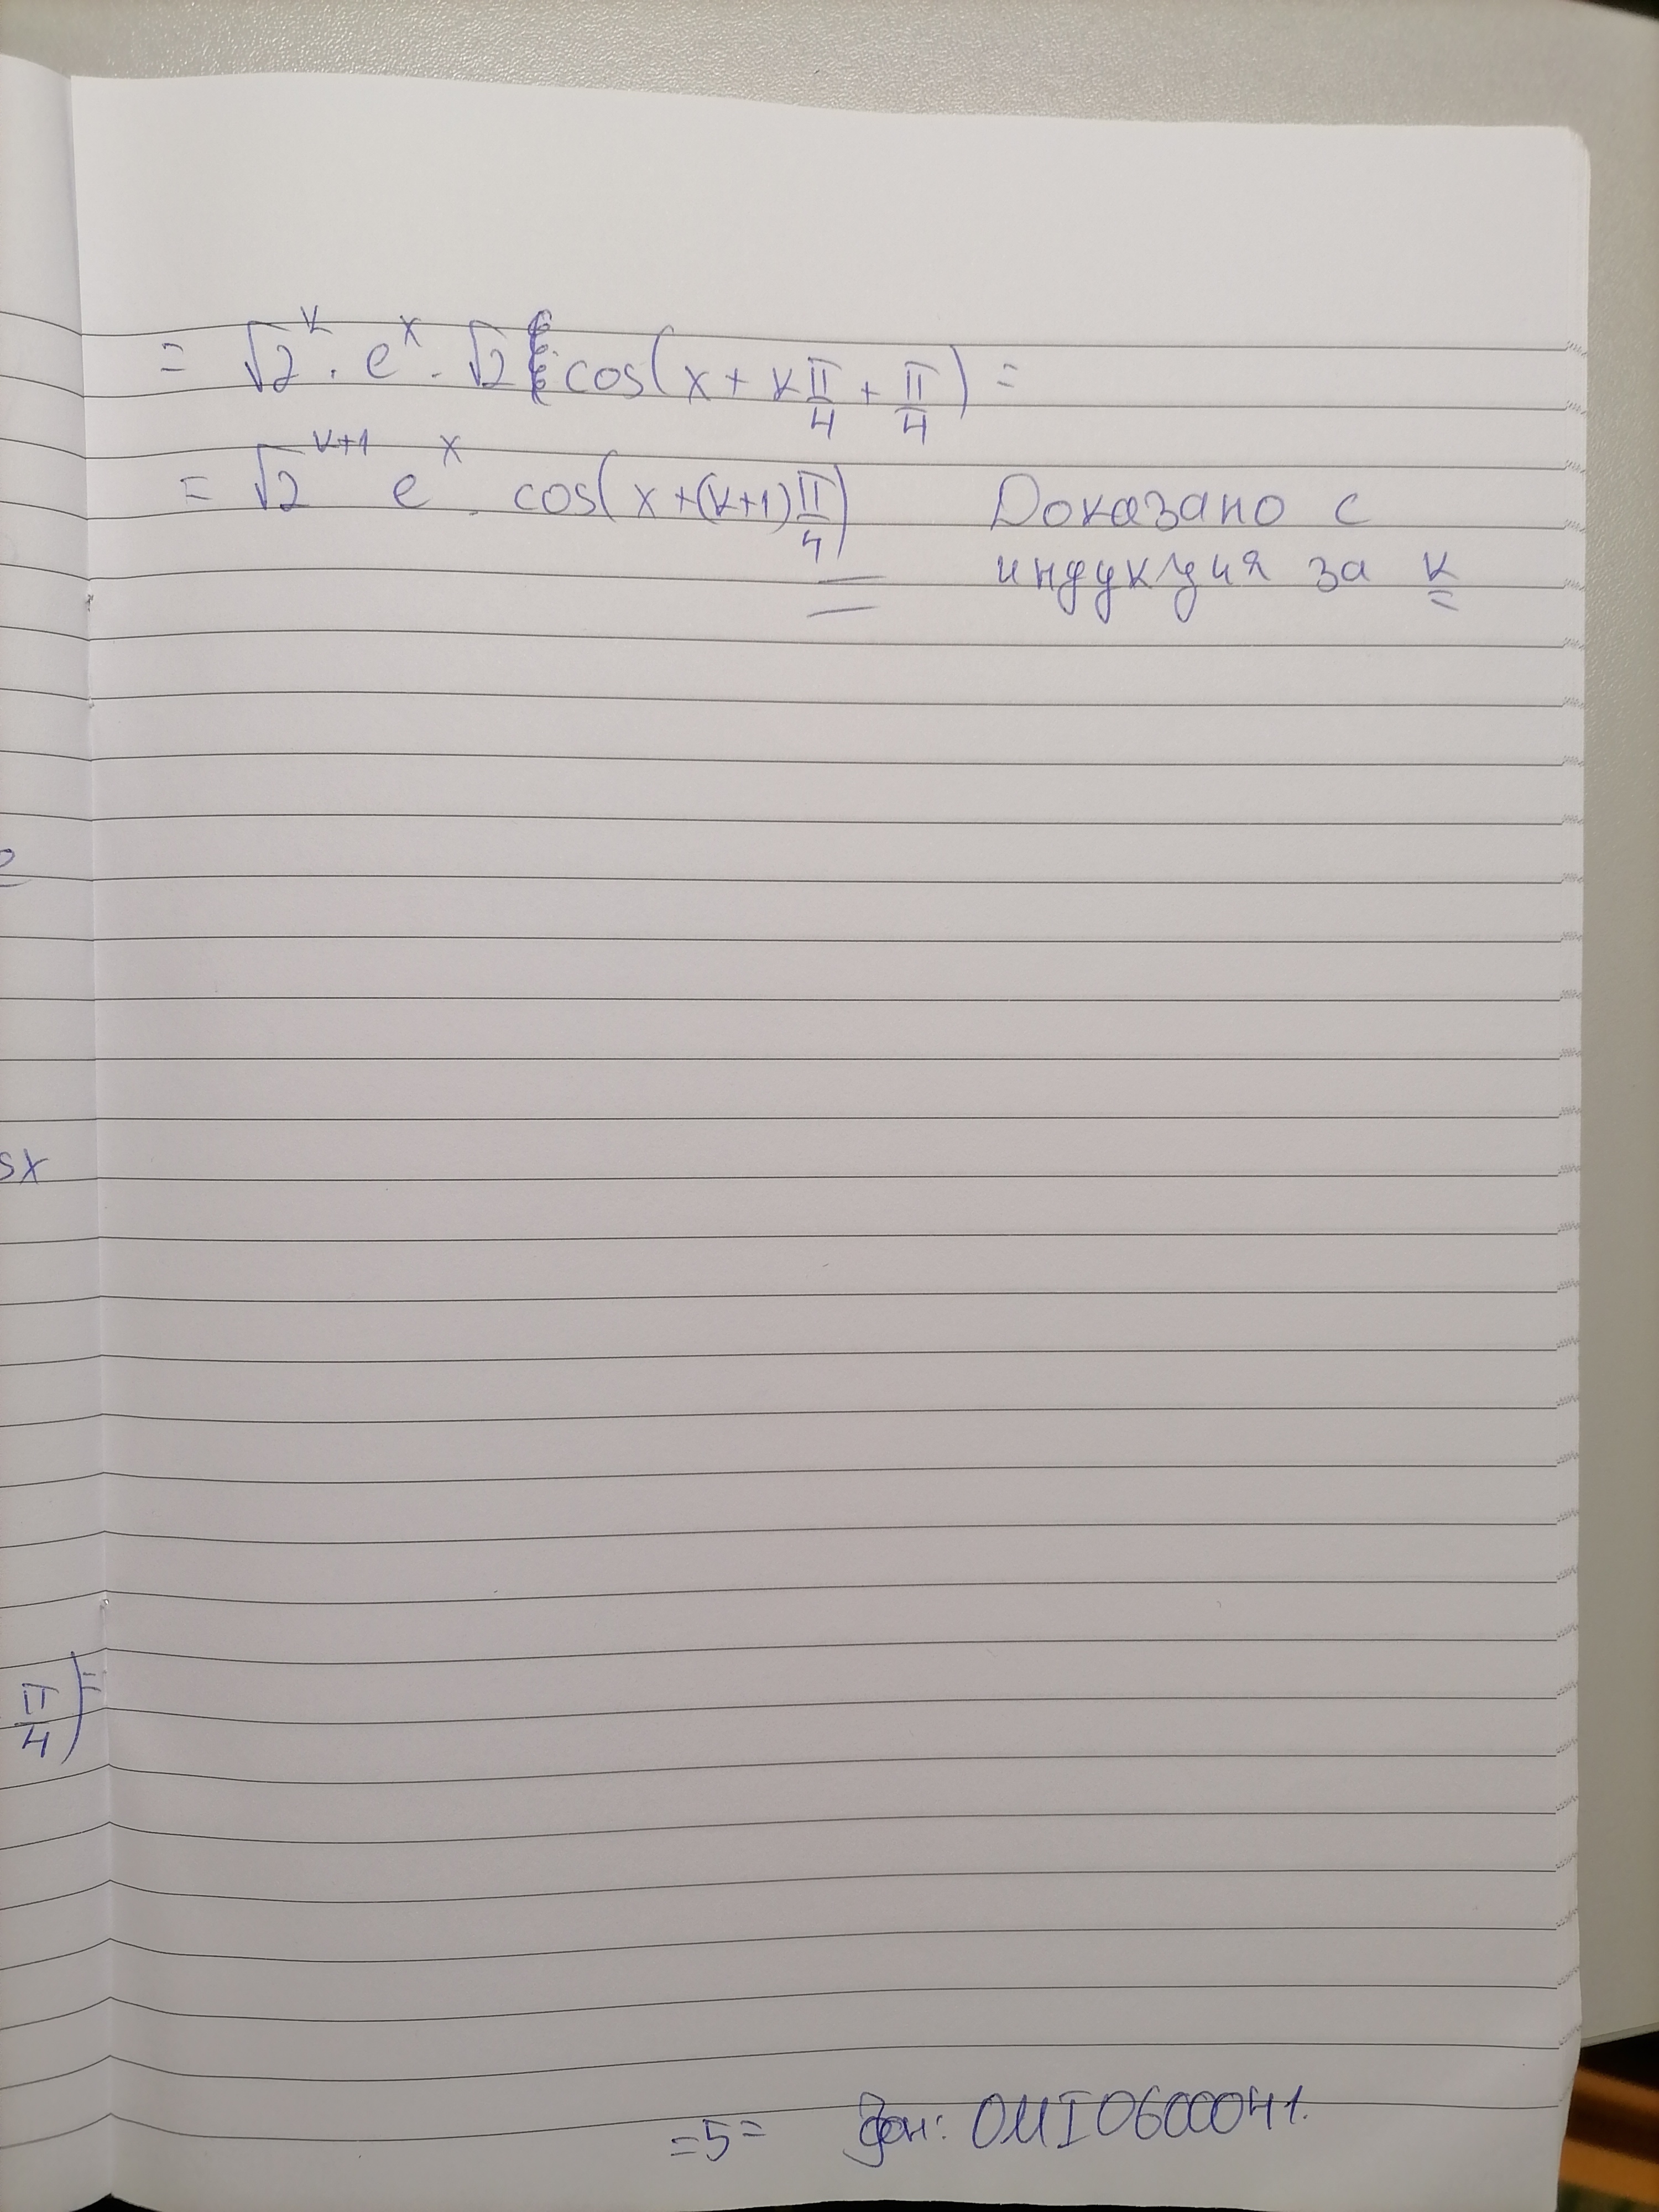 = √2^k . e^x . √2 cos(x + kπ/4 + π/4) =
= √2^(k+1) e^x . cos(x + (k+1)π/4) Доказано с
индукция за k
sx
π/4) =
= 5 = фон: 0MI0600041.